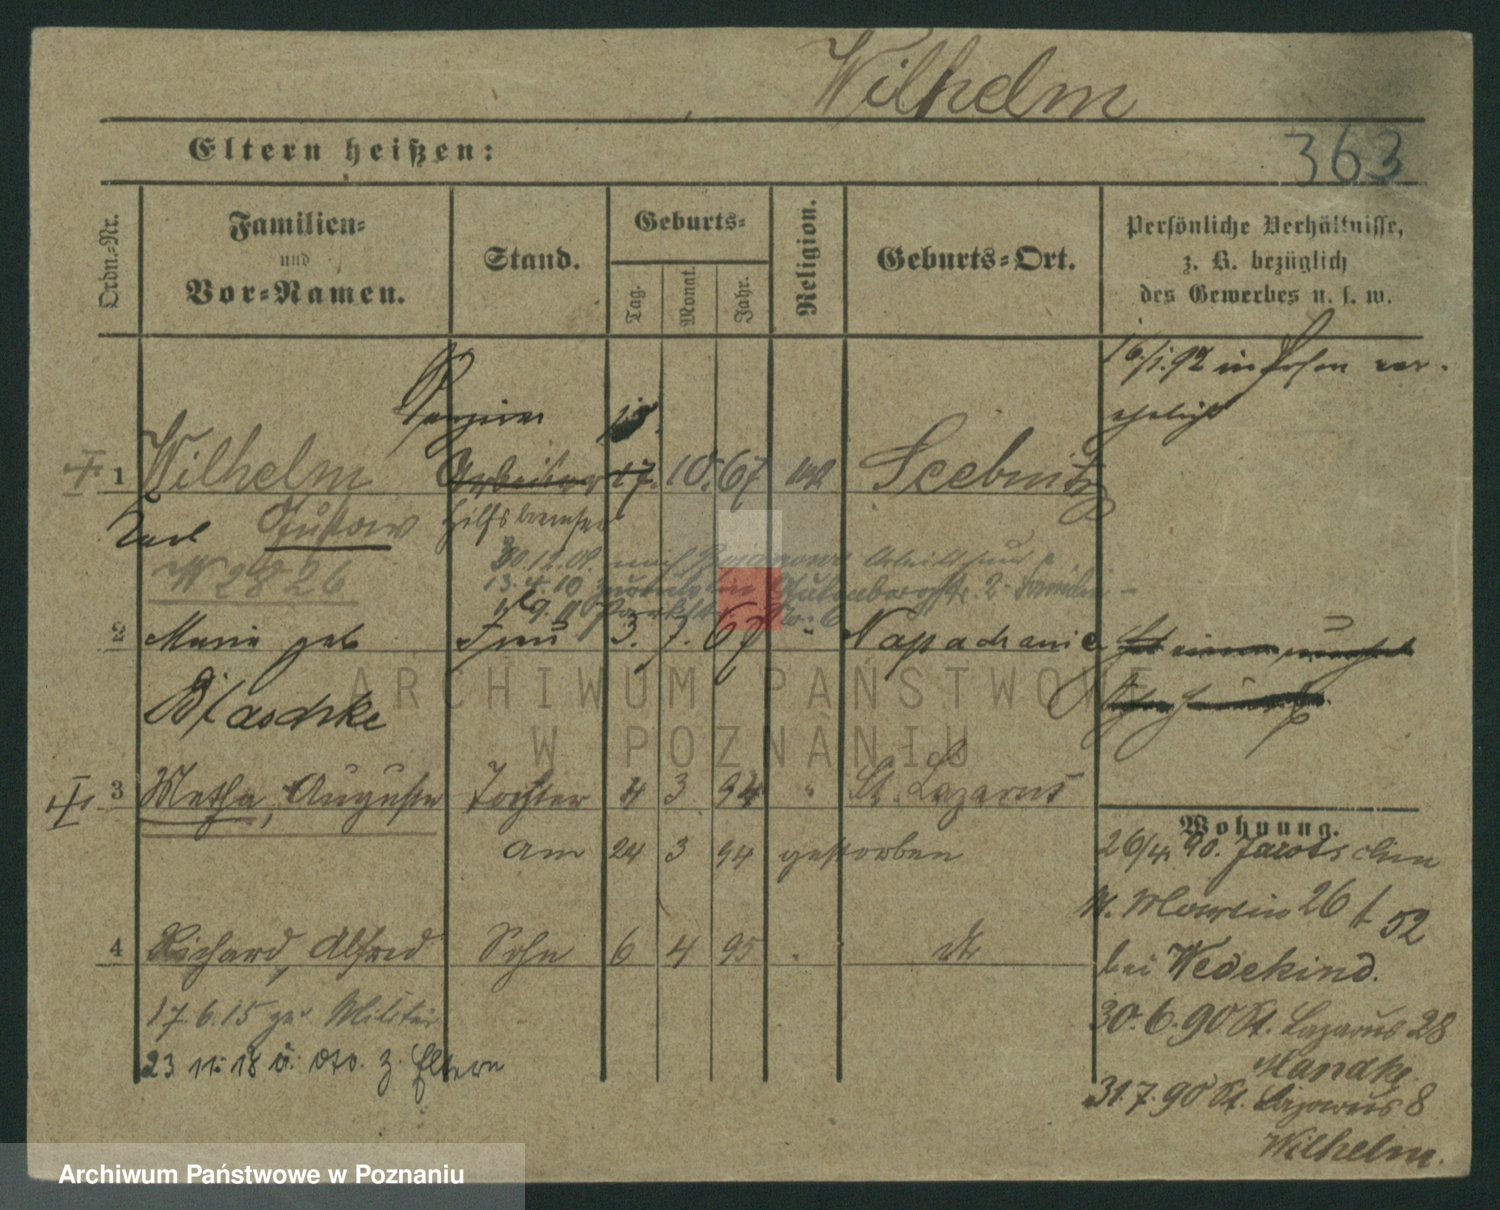 Wilhelm
363
Eltern heißen:
Ordn.-Nr.
Familien-
und
Vor-Namen.
Stand.
Geburts-
Tag.
Monat.
Jahr.
Religion.
Geburts-Ort.
Persönliche Verhältnisse,
z. B. bezüglich
des Gewerbes u. s. w.
16/1.92 in Posen ver-
ehelicht
1 Wilhelm Arbeiter 17. 10. 67 Seebnitz
Karl Gustav Hilfsbremser
W 2826
30.12.09. nach
13.4.10 zurück 2 Familie
2 Marie geb Frau 3. 7. 67 " Napachanie
Blaschke
3 Metha, Auguste Tochter 4 3 94 " St. Lazarus
am 24 3 94 gestorben
Wohnung.
26/4. 90.
St. Martin 26 52
bei Wedekind.
4 Richard, Alfred Sohn 6 4 95 " dto
17.6.15 zu Militär
23 11. 18 v. dto. z. Eltern
30.6.90 St. Lazarus 28
Mandke
31.7.90 St. Lazarus 8
Wilhelm.
ARCHIWUM PAŃSTWOWE
W POZNANIU
Archiwum Państwowe w Poznaniu